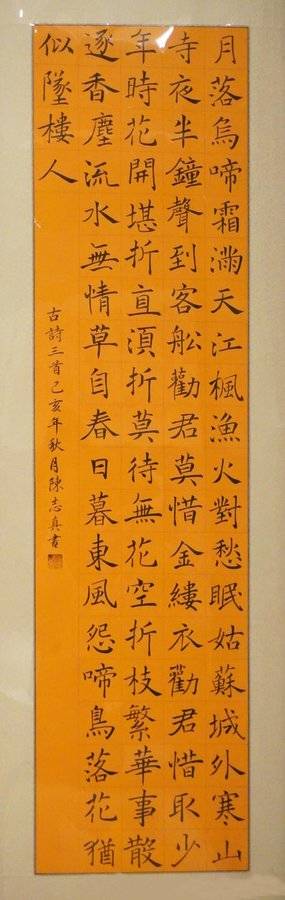 月落烏啼霜滿天江楓漁火對愁眠姑蘇城外寒山
寺夜半鐘聲到客船勸君莫惜金縷衣勸君惜取少
年時花開堪折直須折莫待無花空折枝繁華事散
逐香塵流水無情草自春日暮東風怨啼鳥落花猶
似墜樓人
古詩三首己亥年秋月陳志真書